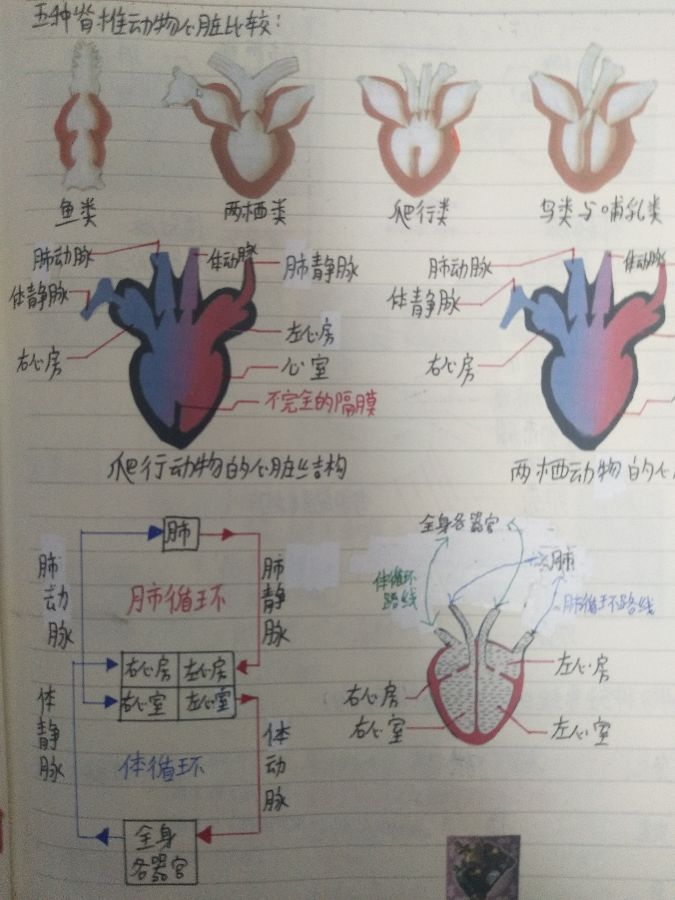 五种脊椎动物心脏比较:
鱼类
两栖类
爬行类
鸟类与哺乳类
肺动脉
体动脉
肺静脉
体静脉
右心房
左心房
心室
不完全的隔膜
爬行动物的心脏结构
肺动脉
体动脉
体静脉
右心房
两栖动物的心
肺
肺动脉
肺循环
肺静脉
右心房 左心房
右心室 左心室
体静脉
体循环
体动脉
全身
各器官
全身各器官
肺
体循环
路线
肺循环路线
左心房
右心房
右心室
左心室